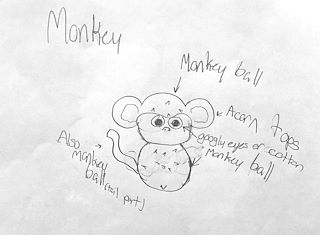 Monkey
Monkey ball
Acorn tops
googly eyes or cotton
Monkey ball
Also
monkey
ball
(tail part)